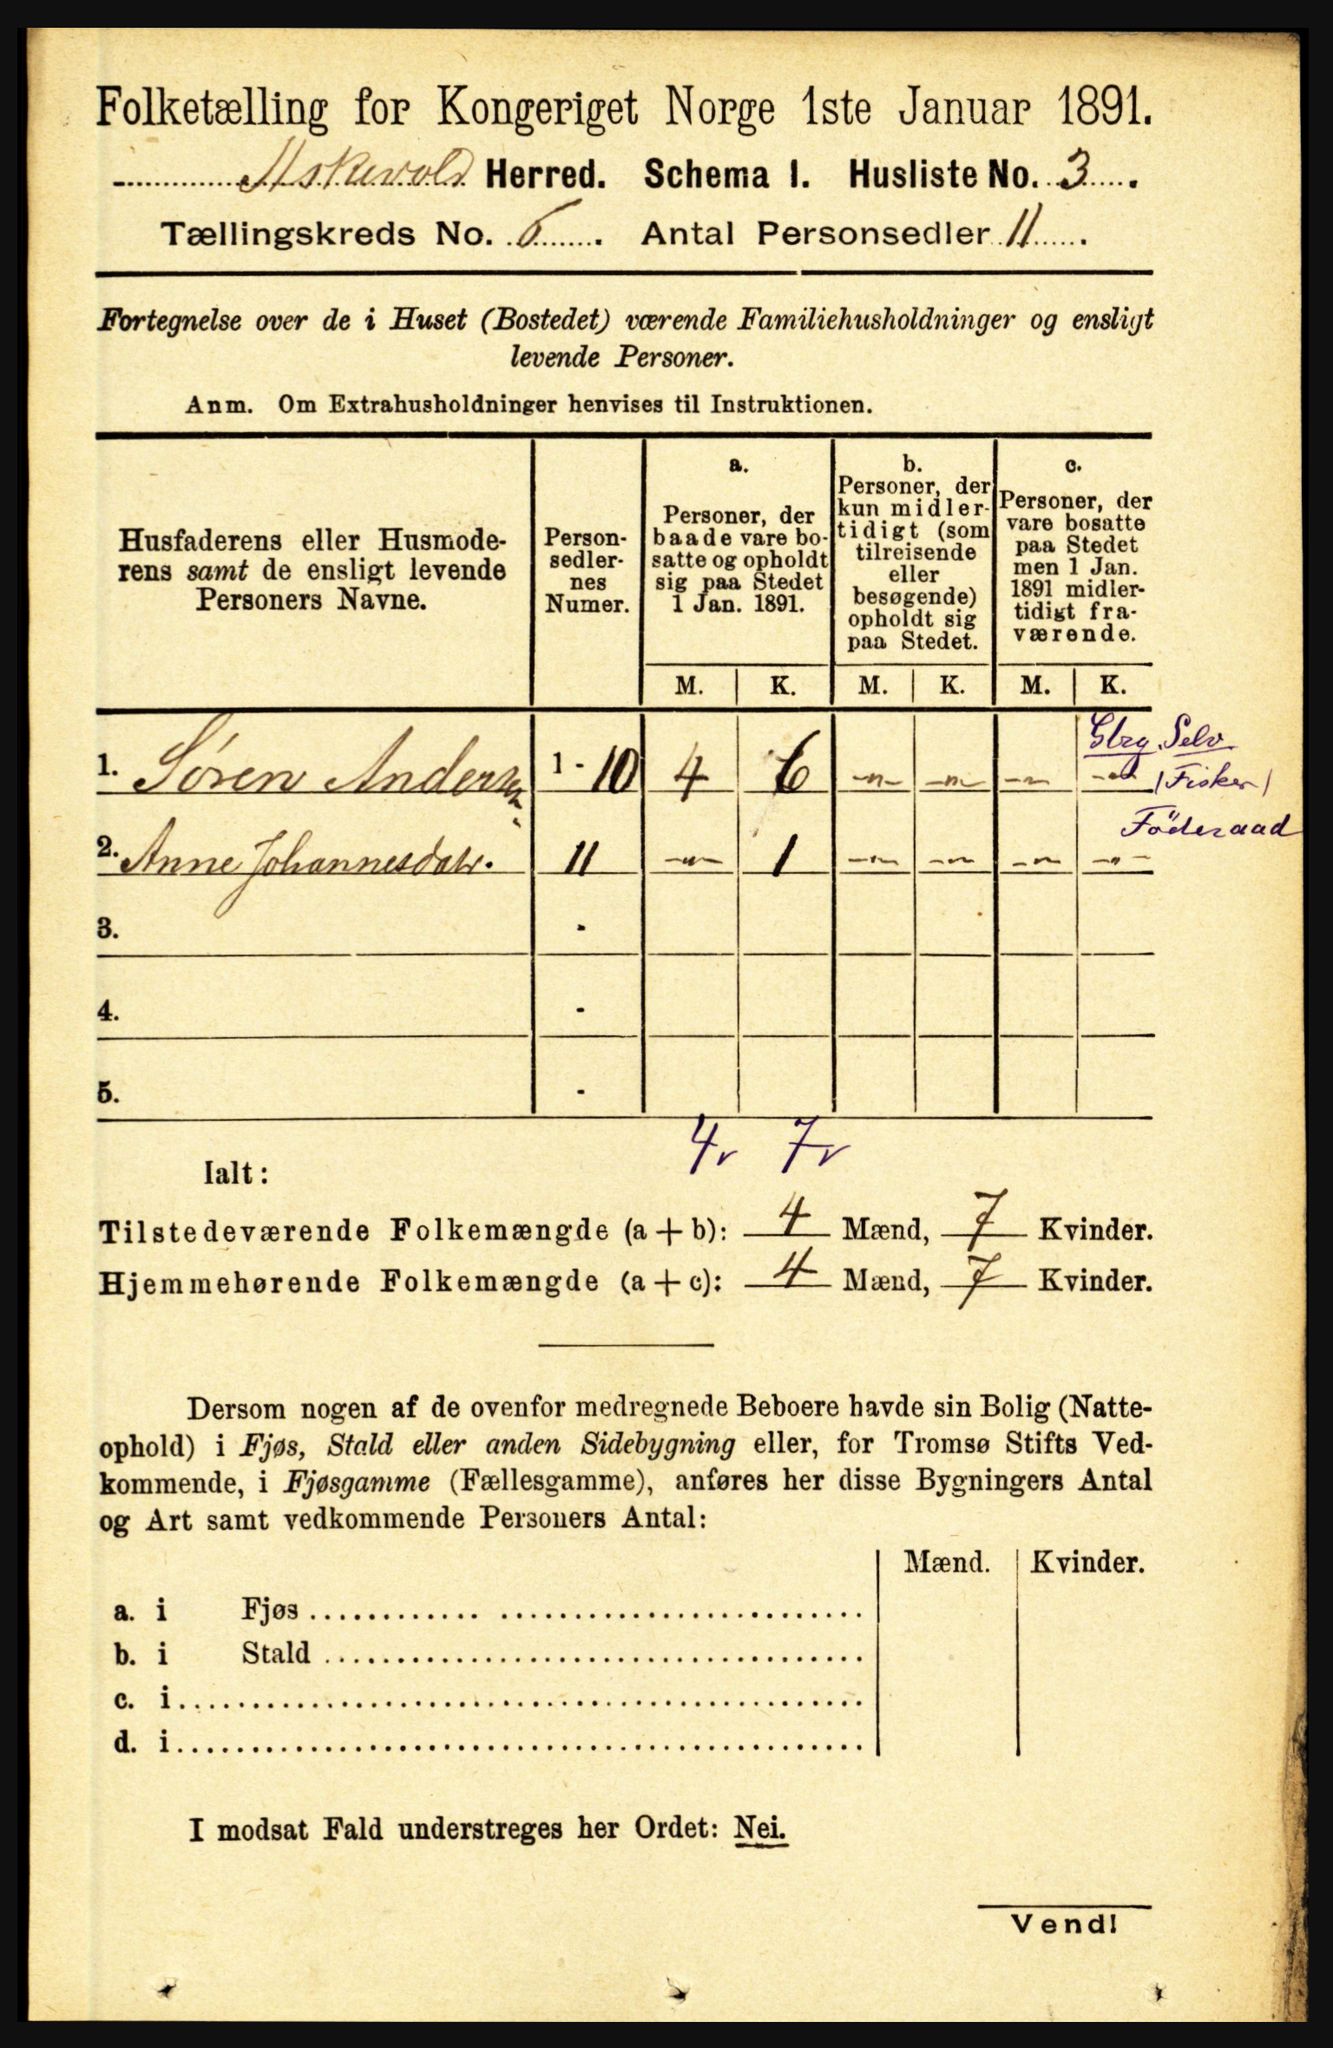 Folketælling for Kongeriget Norge 1ste Januar 1891.
Askevold Herred. Schema 1. Husliste No. 3.
Tællingskreds No. 6. Antal Personsedler 11.
Fortegnelse over de i Huset (Bostedet) værende Familiehusholdninger og ensligt
levende Personer.
Anm. Om Extrahusholdninger henvises til Instruktionen.
Husfaderens eller Husmode-
rens samt de ensligt levende
Personers Navne.
Person-
sedler-
nes
Numer.
a.
Personer, der
baade vare bo-
satte og opholdt
sig paa Stedet
1 Jan. 1891.
b.
Personer, der
kun midler-
tidigt (som
tilreisende
eller
besøgende)
opholdt sig
paa Stedet.
c.
Personer, der
vare bosatte
paa Stedet
men 1 Jan.
1891 midler-
tidigt fra-
værende.
M. K. M. K. M. K.
1. Søren Andersen 1 - 10 4 6 -"- -"- -"- -"- Gbrg. Selv
(Fisker)
2. Anne Johannesdatr. 11 -"- 1 -"- -"- -"- -"- Föderaad
3. -
4. -
5. -
4v 7v
Ialt:
Tilstedeværende Folkemængde (a + b): 4 Mænd, 7 Kvinder.
Hjemmehørende Folkemængde (a + c): 4 Mænd, 7 Kvinder.
Dersom nogen af de ovenfor medregnede Beboere havde sin Bolig (Natte-
ophold) i Fjøs, Stald eller anden Sidebygning eller, for Tromsø Stifts Ved-
kommende, i Fjøsgamme (Fællesgamme), anføres her disse Bygningers Antal
og Art samt vedkommende Personers Antal:
Mænd. Kvinder.
a. i Fjøs
b. i Stald
c. i
d. i
I modsat Fald understreges her Ordet: Nei.
Vend!